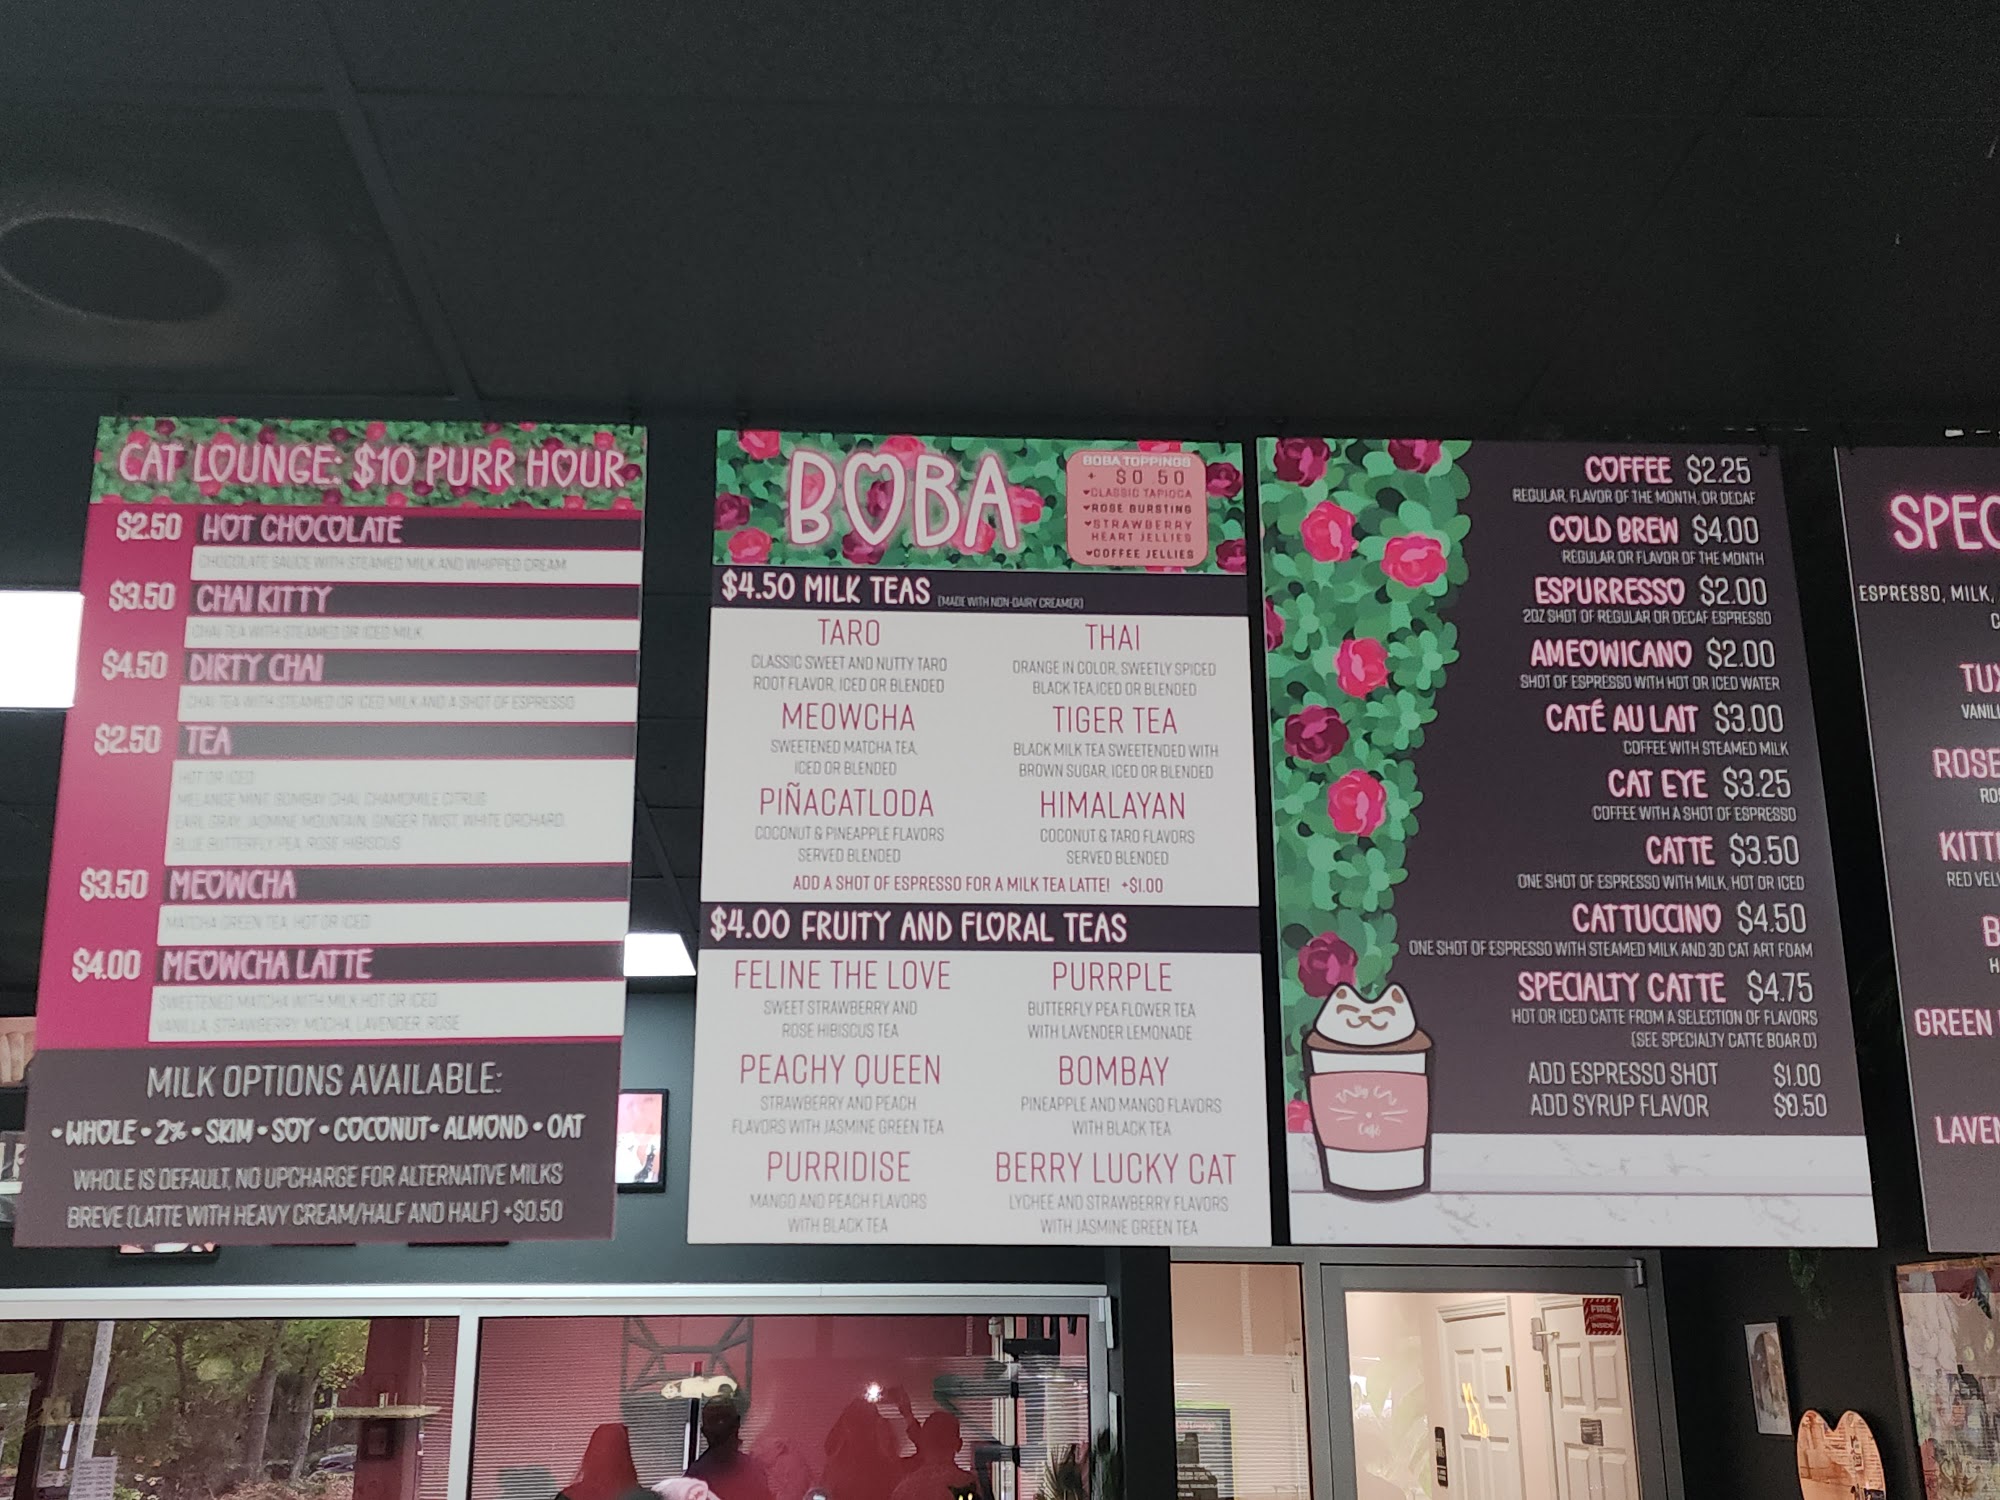 CAT LOUNGE: $10 PURR HOUR
$2.50 HOT CHOCOLATE
CHOCOLATE SAUCE WITH STEAMED MILK AND WHIPPED CREAM
$3.50 CHAI KITTY
CHAI TEA WITH STEAMED OR ICED MILK
$4.50 DIRTY CHAI
CHAI TEA WITH STEAMED OR ICED MILK AND A SHOT OF ESPRESSO
$2.50 TEA
HOT OR ICED
MELANGE MINT, BOMBAY CHAI, CHAMOMILE CITRUS
EARL GRAY, JASMINE MOUNTAIN, GINGER TWIST, WHITE ORCHARD,
BLUE BUTTERFLY PEA, ROSE HIBISCUS
$3.50 MEOWCHA
MATCHA GREEN TEA, HOT OR ICED
$4.00 MEOWCHA LATTE
SWEETENED MATCHA WITH MILK HOT OR ICED
VANILLA, STRAWBERRY, MOCHA, LAVENDER, ROSE
MILK OPTIONS AVAILABLE:
• WHOLE • 2% • SKIM • SOY • COCONUT • ALMOND • OAT
WHOLE IS DEFAULT, NO UPCHARGE FOR ALTERNATIVE MILKS
BREVE (LATTE WITH HEAVY CREAM/HALF AND HALF) +$0.50
BOBA
BOBA TOPPINGS
+ $0.50
♥CLASSIC TAPIOCA
♥ROSE BURSTING
♥STRAWBERRY
HEART JELLIES
♥COFFEE JELLIES
$4.50 MILK TEAS (MADE WITH NON-DAIRY CREAMER)
TARO
CLASSIC SWEET AND NUTTY TARO
ROOT FLAVOR, ICED OR BLENDED
THAI
ORANGE IN COLOR, SWEETLY SPICED
BLACK TEA,ICED OR BLENDED
MEOWCHA
SWEETENED MATCHA TEA,
ICED OR BLENDED
TIGER TEA
BLACK MILK TEA SWEETENDED WITH
BROWN SUGAR, ICED OR BLENDED
PIÑACATLODA
COCONUT & PINEAPPLE FLAVORS
SERVED BLENDED
HIMALAYAN
COCONUT & TARO FLAVORS
SERVED BLENDED
ADD A SHOT OF ESPRESSO FOR A MILK TEA LATTE! +$1.00
$4.00 FRUITY AND FLORAL TEAS
FELINE THE LOVE
SWEET STRAWBERRY AND
ROSE HIBISCUS TEA
PURRPLE
BUTTERFLY PEA FLOWER TEA
WITH LAVENDER LEMONADE
PEACHY QUEEN
STRAWBERRY AND PEACH
FLAVORS WITH JASMINE GREEN TEA
BOMBAY
PINEAPPLE AND MANGO FLAVORS
WITH BLACK TEA
PURRIDISE
MANGO AND PEACH FLAVORS
WITH BLACK TEA
BERRY LUCKY CAT
LYCHEE AND STRAWBERRY FLAVORS
WITH JASMINE GREEN TEA
COFFEE $2.25
REGULAR, FLAVOR OF THE MONTH, OR DECAF
COLD BREW $4.00
REGULAR OR FLAVOR OF THE MONTH
ESPURRESSO $2.00
2OZ SHOT OF REGULAR OR DECAF ESPRESSO
AMEOWICANO $2.00
SHOT OF ESPRESSO WITH HOT OR ICED WATER
CATÉ AU LAIT $3.00
COFFEE WITH STEAMED MILK
CAT EYE $3.25
COFFEE WITH A SHOT OF ESPRESSO
CATTE $3.50
ONE SHOT OF ESPRESSO WITH MILK, HOT OR ICED
CATTUCCINO $4.50
ONE SHOT OF ESPRESSO WITH STEAMED MILK AND 3D CAT ART FOAM
SPECIALTY CATTE $4.75
HOT OR ICED CATTE FROM A SELECTION OF FLAVORS
(SEE SPECIALTY CATTE BOARD)
ADD ESPRESSO SHOT $1.00
ADD SYRUP FLAVOR $0.50
Café
SPEC
ESPRESSO, MILK,
TUX
VANIL
ROSE
RO
KITT
RED VEL
B
H
GREEN
LAVEN
FIRE
INSIDE